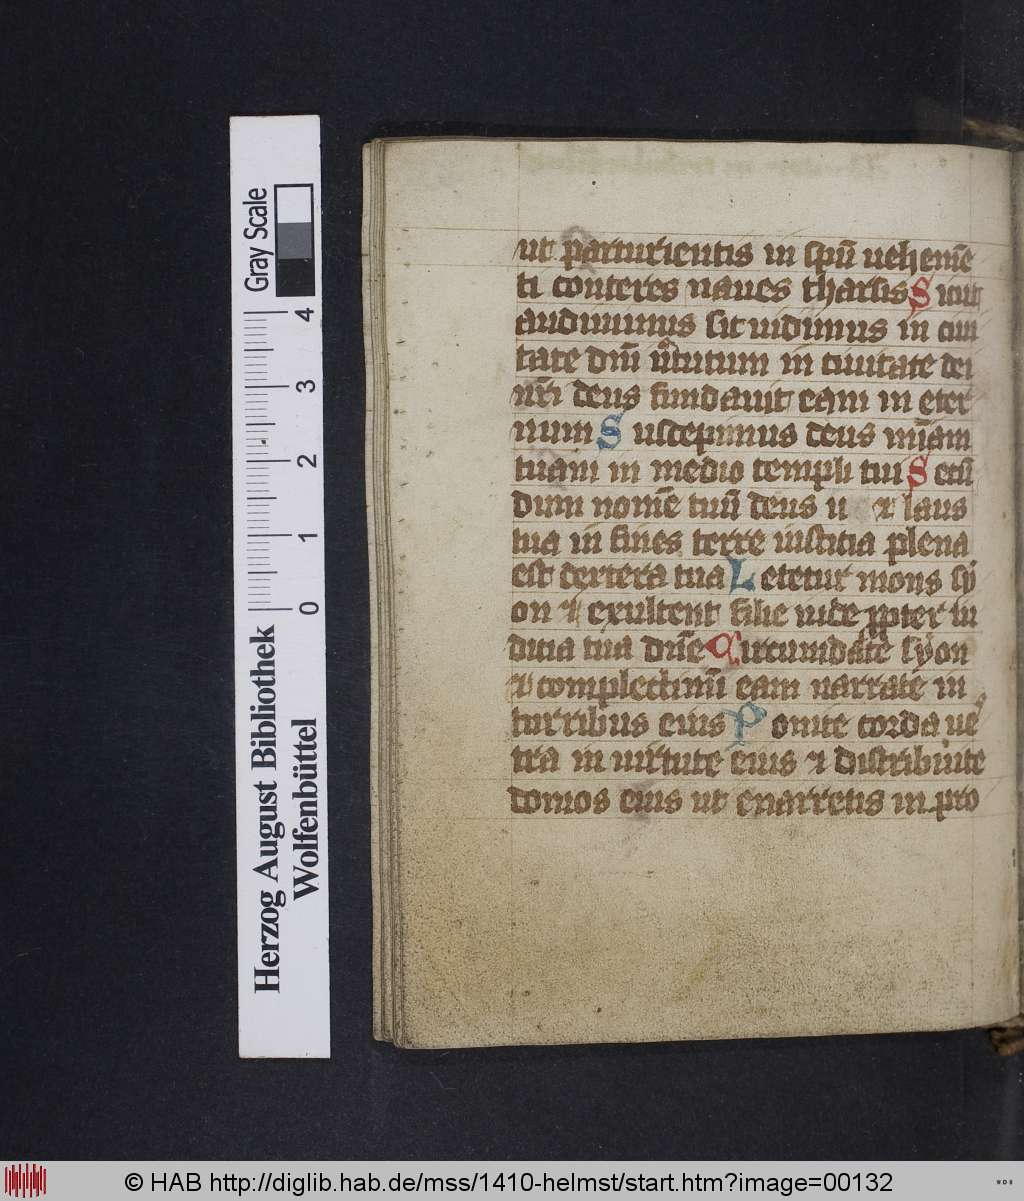 ut parturientis in spū uehemē
ti conteres naues tharsis Sicut
audiuimus sic uidimus in ciui
tate dnī uirtutum in ciuitate dei
nrī deus fundauit eam in eter
num Suscepimus deus mīam
tuam in medio templi tui Secū
dum nomē tuū deus et laus
tua in fines terre iusticia plena
est dextera tua Letetur mons sy
on et exultent filie iude ppter iu
dicia tua dnē Circumdate syon
et complectimī eam narrate in
turribus eius Ponite corda ue
tra in uirtute eius et distribuite
domos eius ut enarretis in pro
Gray Scale
4
3
2
1
0
Herzog August Bibliothek
Wolfenbüttel
© HAB http://diglib.hab.de/mss/1410-helmst/start.htm?image=00132